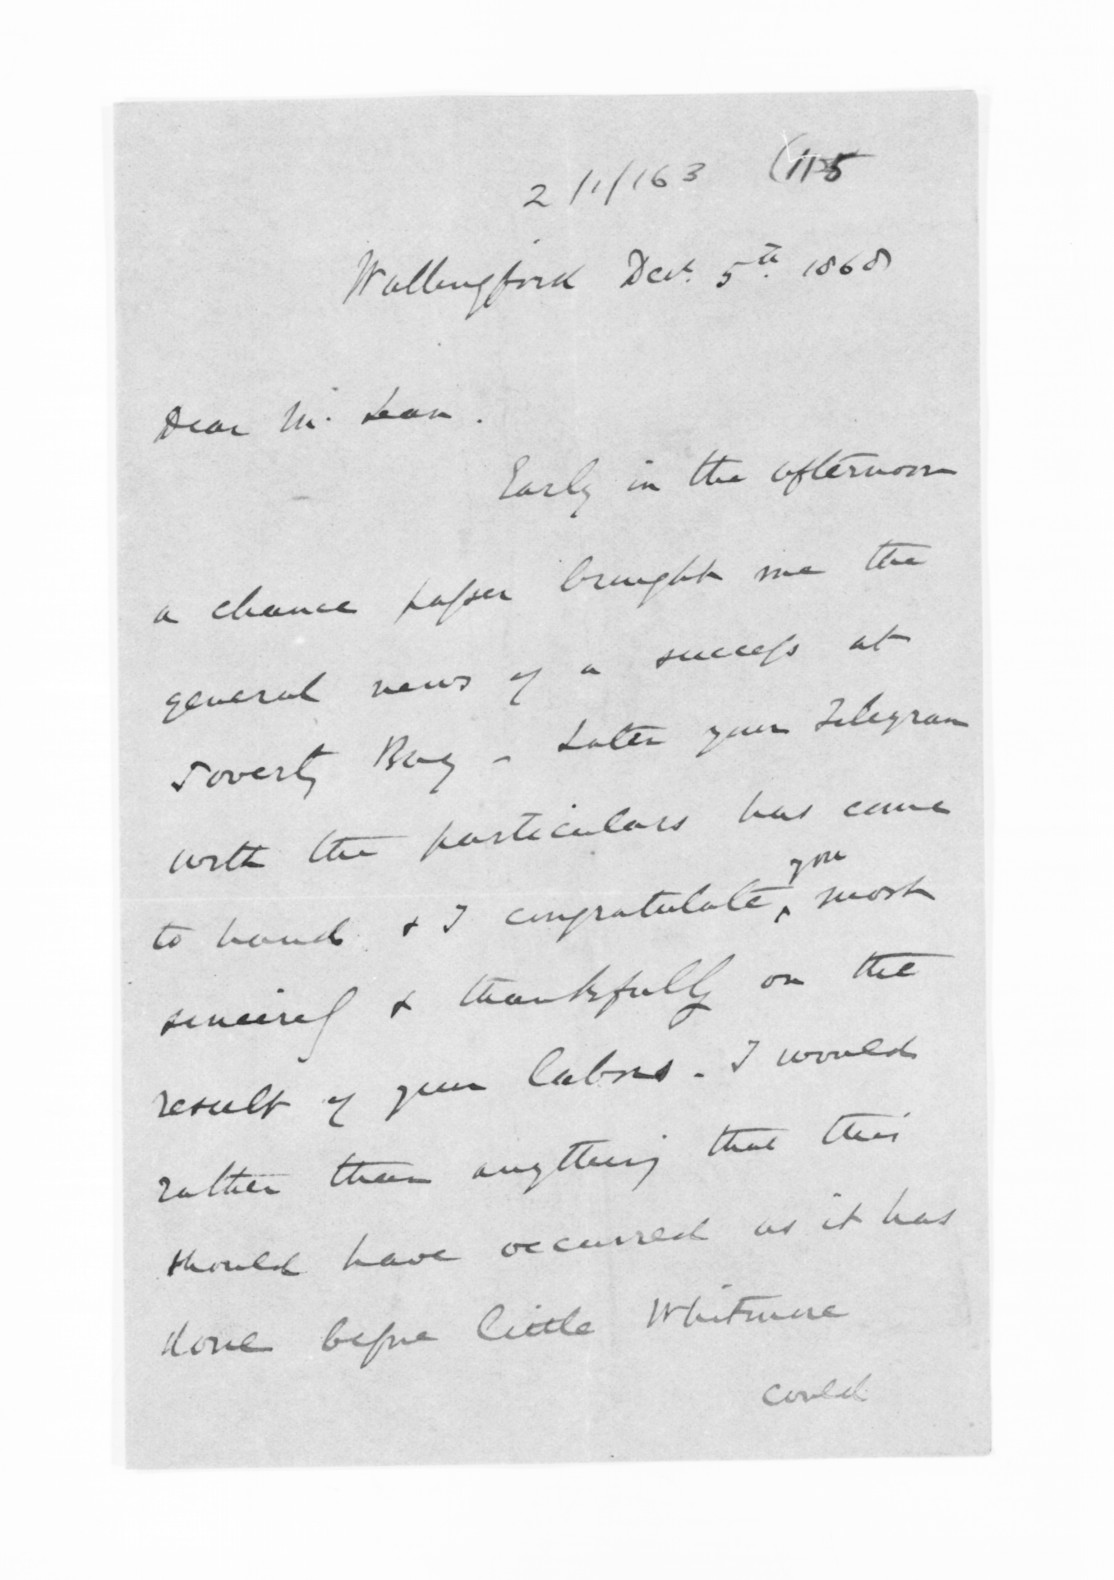 2/1/163 (115
Wallingford Decr. 5th. 1868
Dear Mc. Lean.
Early in the afternoon
a chance passer brought me the
general news of a success at
Poverty Bay - Later your Telegram
with the particulars has come
to hand & I congratulate you most
sincerely & thankfully on the
result of your labors. I would
rather than anything that this
should have occurred as it has
done before little Whitmore
could